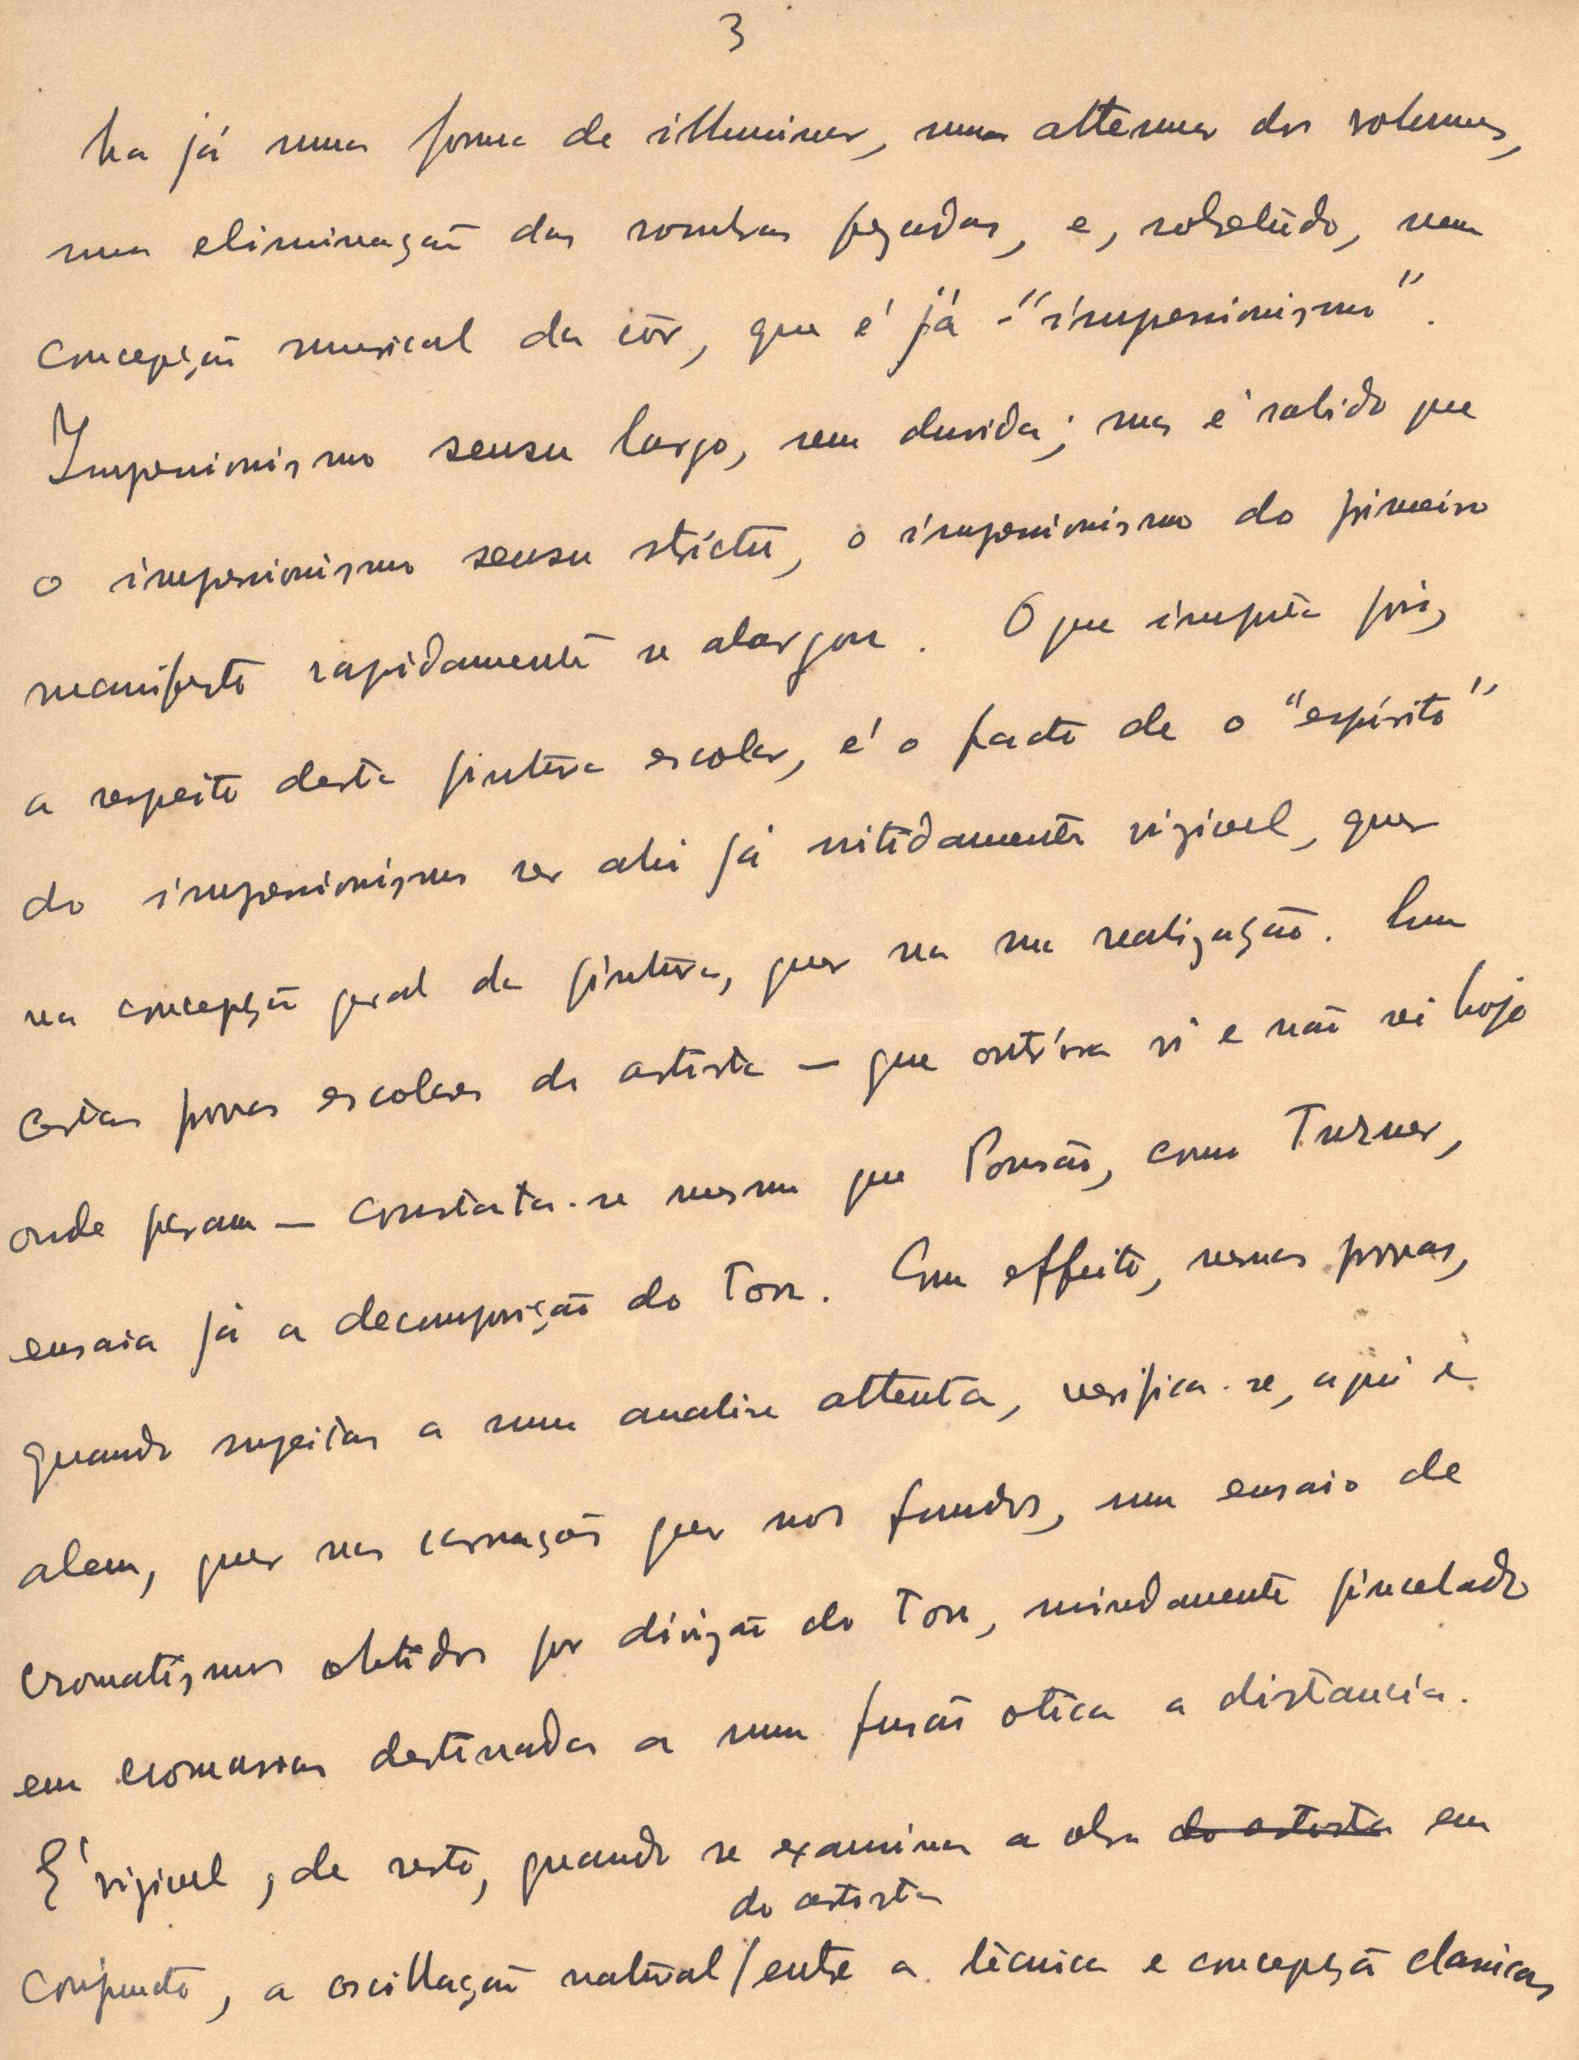 3
ha já uma forma de illuminar, um attenuar dos volumes,
uma eliminação das sombras pezadas, e, sobretudo, uma
concepção musical da côr, que é já - "impressionismo".
Impressionismo sensu largo, sem duvida; mas é sabido que
o impressionismo sensu strictu, o impressionismo do primeiro
manifesto rapidamente se alargou. O que importa pois,
a respeito desta pintura escolar, é o facto de o "espírito"
do impressionismo ser ahi já nitidamente vizivel, quer
na concepção geral da pintura, quer na sua realização. Em
certas provas escolares do artista — que outróra vi e não sei hoje
onde param — constata-se mesmo que Pousão, como Turner,
ensaia já a decomposição do Tom. Com effeito, nessas provas,
quando sujeitas a uma analise attenta, verifica-se, aqui e
alem, quer nas carnações quer nos fundos, um ensaio de
cromatismos obtidos por divizão do Tom, miudamente pincelado
em cromassias destinadas a uma fusão otica a distancia.
É vizivel, de resto, quando se examina a obra do artista em
do artista
conjuncto, a oscillação natural / entre a técnica e concepção classicas